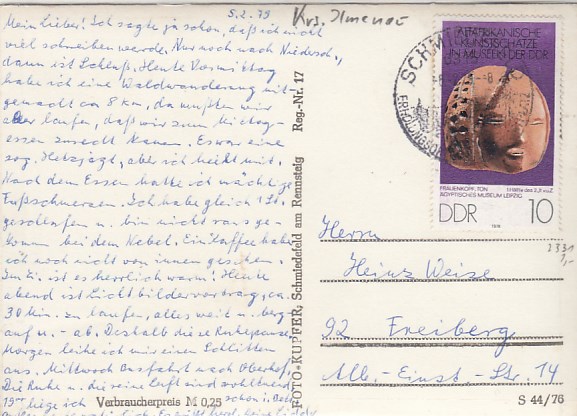 5.2.79
Krs. Ilmenau
Mein Lieber! Ich sagte ja schon, daß ich nicht
viel schreiben werde. Nur noch nach Niedersch.,
dann ist Schluß. Heute Vormittag
habe ich eine Waldwanderung mit-
gemacht ca 8 km, da mußten wir
aber laufen, daß wir zum Mittag-
essen zurecht kamen. Es war eine
sog. Hetzjagd, aber ich hielt mit.
Nach dem Essen hatte ich mächtige
Fußschmerzen. Ich habe gleich 1 Std.
geschlafen u. bin nicht rausge-
kommen bei dem Nebel. Ein Kaffee habe
ich noch nicht von innen gesehen.
Im Zi. ist es herrlich warm! Heute
abend ist Lichtbildervortrag, ca.
30 Min. zu laufen, alles weit u. berg
auf u. - ab. Deshalb diese Ruhepause.
Morgen leihe ich mir einen Schlitten
aus. Mittwoch Busfahrt nach Oberhof.
Die Ruhe u. die reine Luft sind wohltuend
liege ich schon i. Bett
Verbraucherpreis M 0,25
FOTO-KUPFER, Schmiedefeld am Rennsteig Reg.-Nr. 17
ALTAFRIKANISCHE
KUNSTSCHÄTZE
IN MUSEEN DER DDR
FRAUENKOPF, TON
ÄGYPTISCHES MUSEUM LEIPZIG
DDR 10
SCHM
Herrn
Heinz Weise
92 Freiberg
Alb.-Einst-Str. 14
2331
1,-
S 44/76